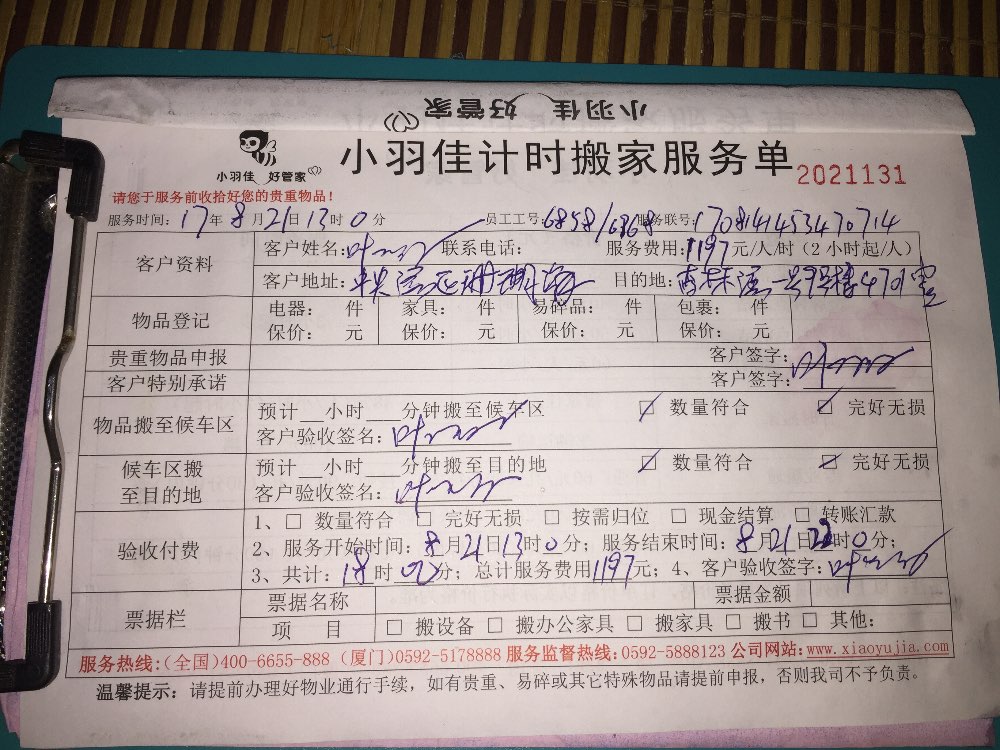 小羽佳 好管家
小羽佳 好管家
小羽佳计时搬家服务单
2021131
请您于服务前收拾好您的贵重物品！
服务时间：17年8月21日13时0分 员工工号：6858/6868 服务联号：1708141453470714
客户资料
客户姓名： 联系电话： 服务费用：1197元/人/时（2小时起/人）
客户地址： 目的地：
物品登记
电器： 件 家具： 件 易碎品： 件 包裹： 件
保价： 元 保价： 元 保价： 元 保价： 元
贵重物品申报 客户签字：
客户特别承诺 客户签字：
物品搬至候车区
预计__小时__分钟搬至候车区 ☑ 数量符合 ☑ 完好无损
客户验收签名：
候车区搬至目的地
预计__小时__分钟搬至目的地 ☑ 数量符合 ☑ 完好无损
客户验收签名：
验收付费
1、□ 数量符合 □ 完好无损 □ 按需归位 □ 现金结算 □ 转账汇款
2、服务开始时间：8月21日13时0分；服务结束时间：8月21日时0分；
3、共计：时分；总计服务费用1197元；4、客户验收签字：
票据栏
票据名称 票据金额
项 目 □ 搬设备 □ 搬办公家具 □ 搬家具 □ 搬书 □ 其他：
服务热线：(全国)400-6655-888 (厦门)0592-5178888 服务监督热线：0592-5888123 公司网站：www.xiaoyujia.com
温馨提示：请提前办理好物业通行手续，如有贵重、易碎或其它特殊物品请提前申报，否则我司不予负责。